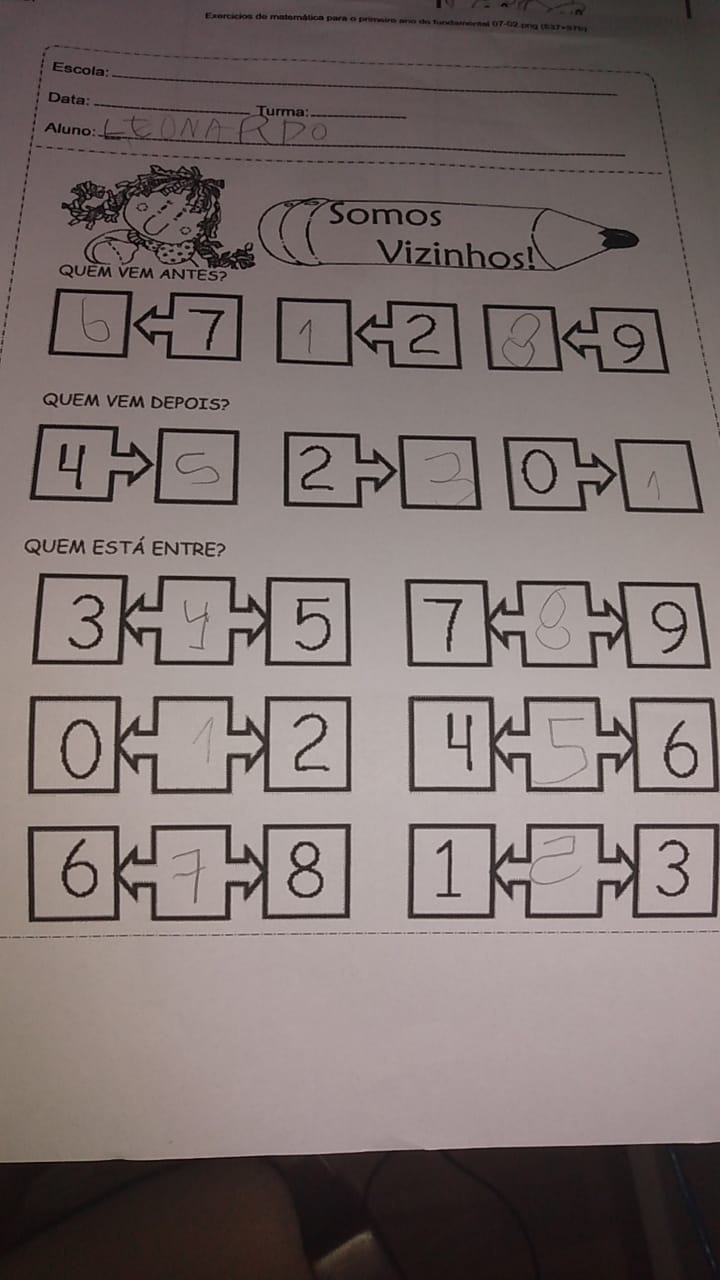 Exercícios de matemática para o primeiro ano do fundamental 07-02.png (637×876)
Escola:
Data: Turma:
Aluno: LEONARDO
Somos
Vizinhos!
QUEM VEM ANTES?
6 7 1 2 8 9
QUEM VEM DEPOIS?
4 5 2 3 0 1
QUEM ESTÁ ENTRE?
3 4 5 7 8 9
0 1 2 4 5 6
6 7 8 1 2 3